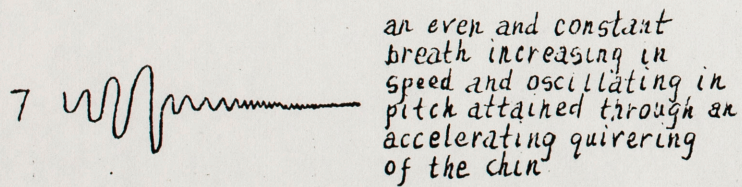 7
an even and constant
breath increasing in
speed and oscillating in
pitch attained through an
accelerating quivering
of the chin